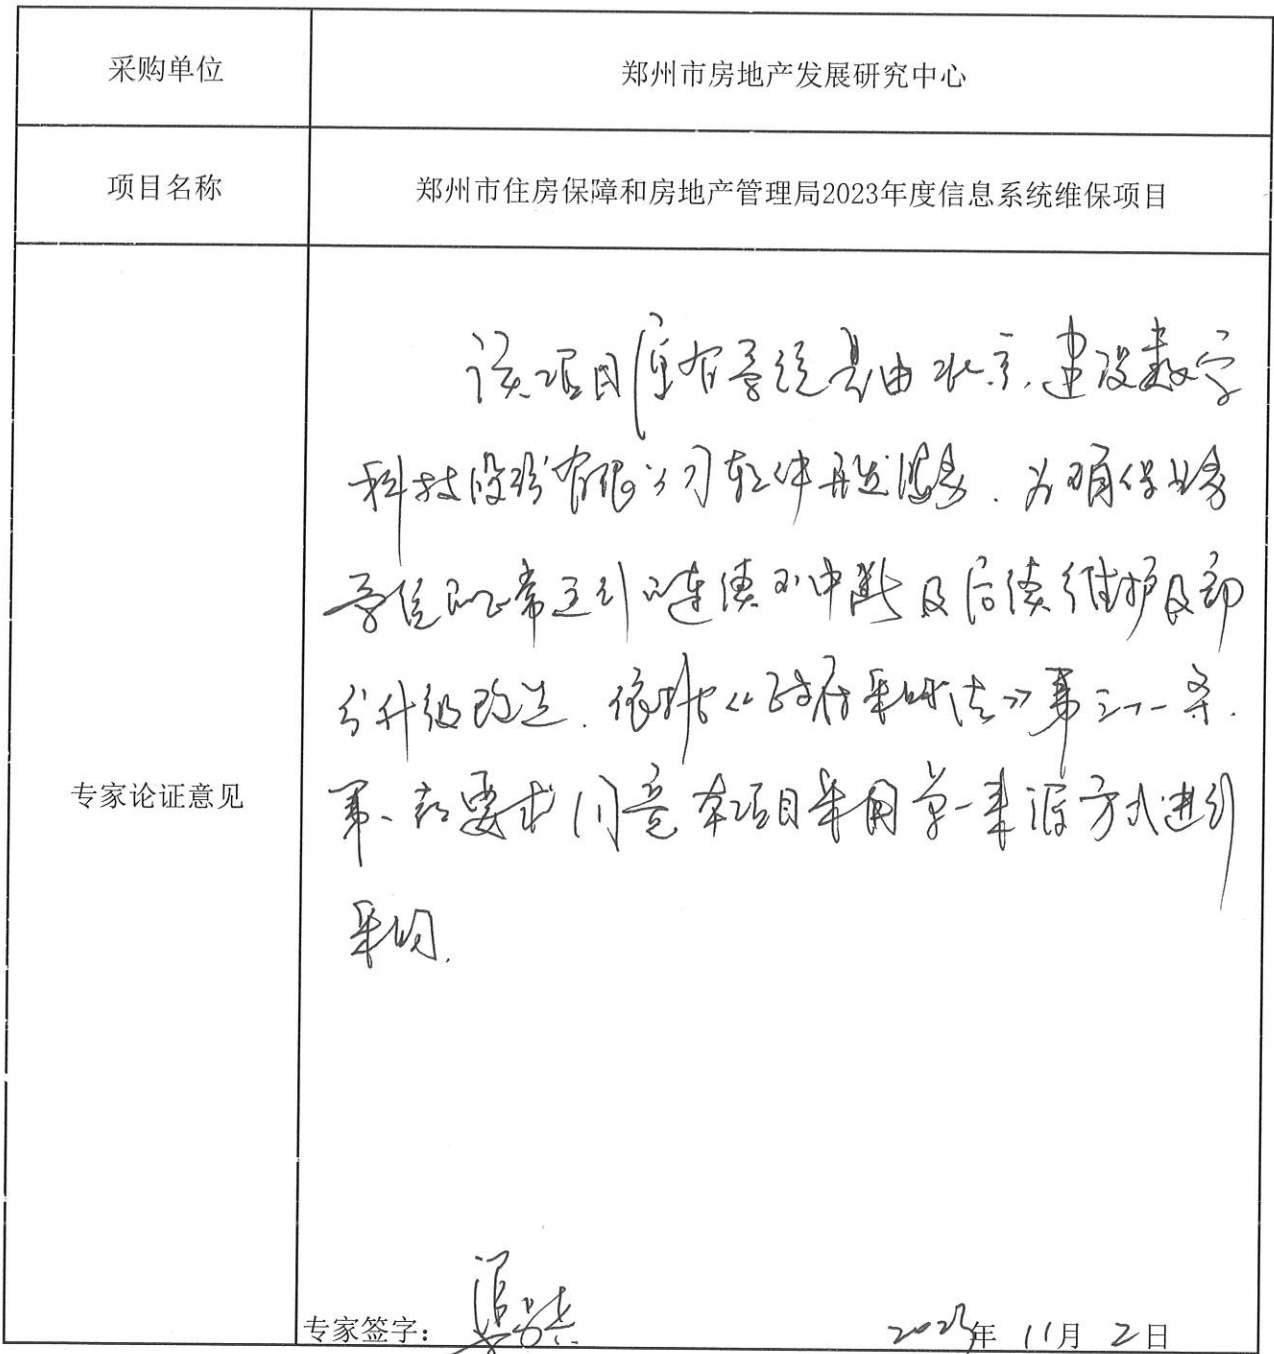 采购单位 郑州市房地产发展研究中心
项目名称 郑州市住房保障和房地产管理局2023年度信息系统维保项目
该项目原有系统是由北京建设数字
科技股份有限公司软件开发服务.为确保业务
系统的正常运行的连续不中断及后续维护及部
分升级改造.依据《政府采购法》第三十一条.
专家论证意见
第一款要求同意本项目采用单一来源方式进行
采购.
专家签字: 2023年11月2日